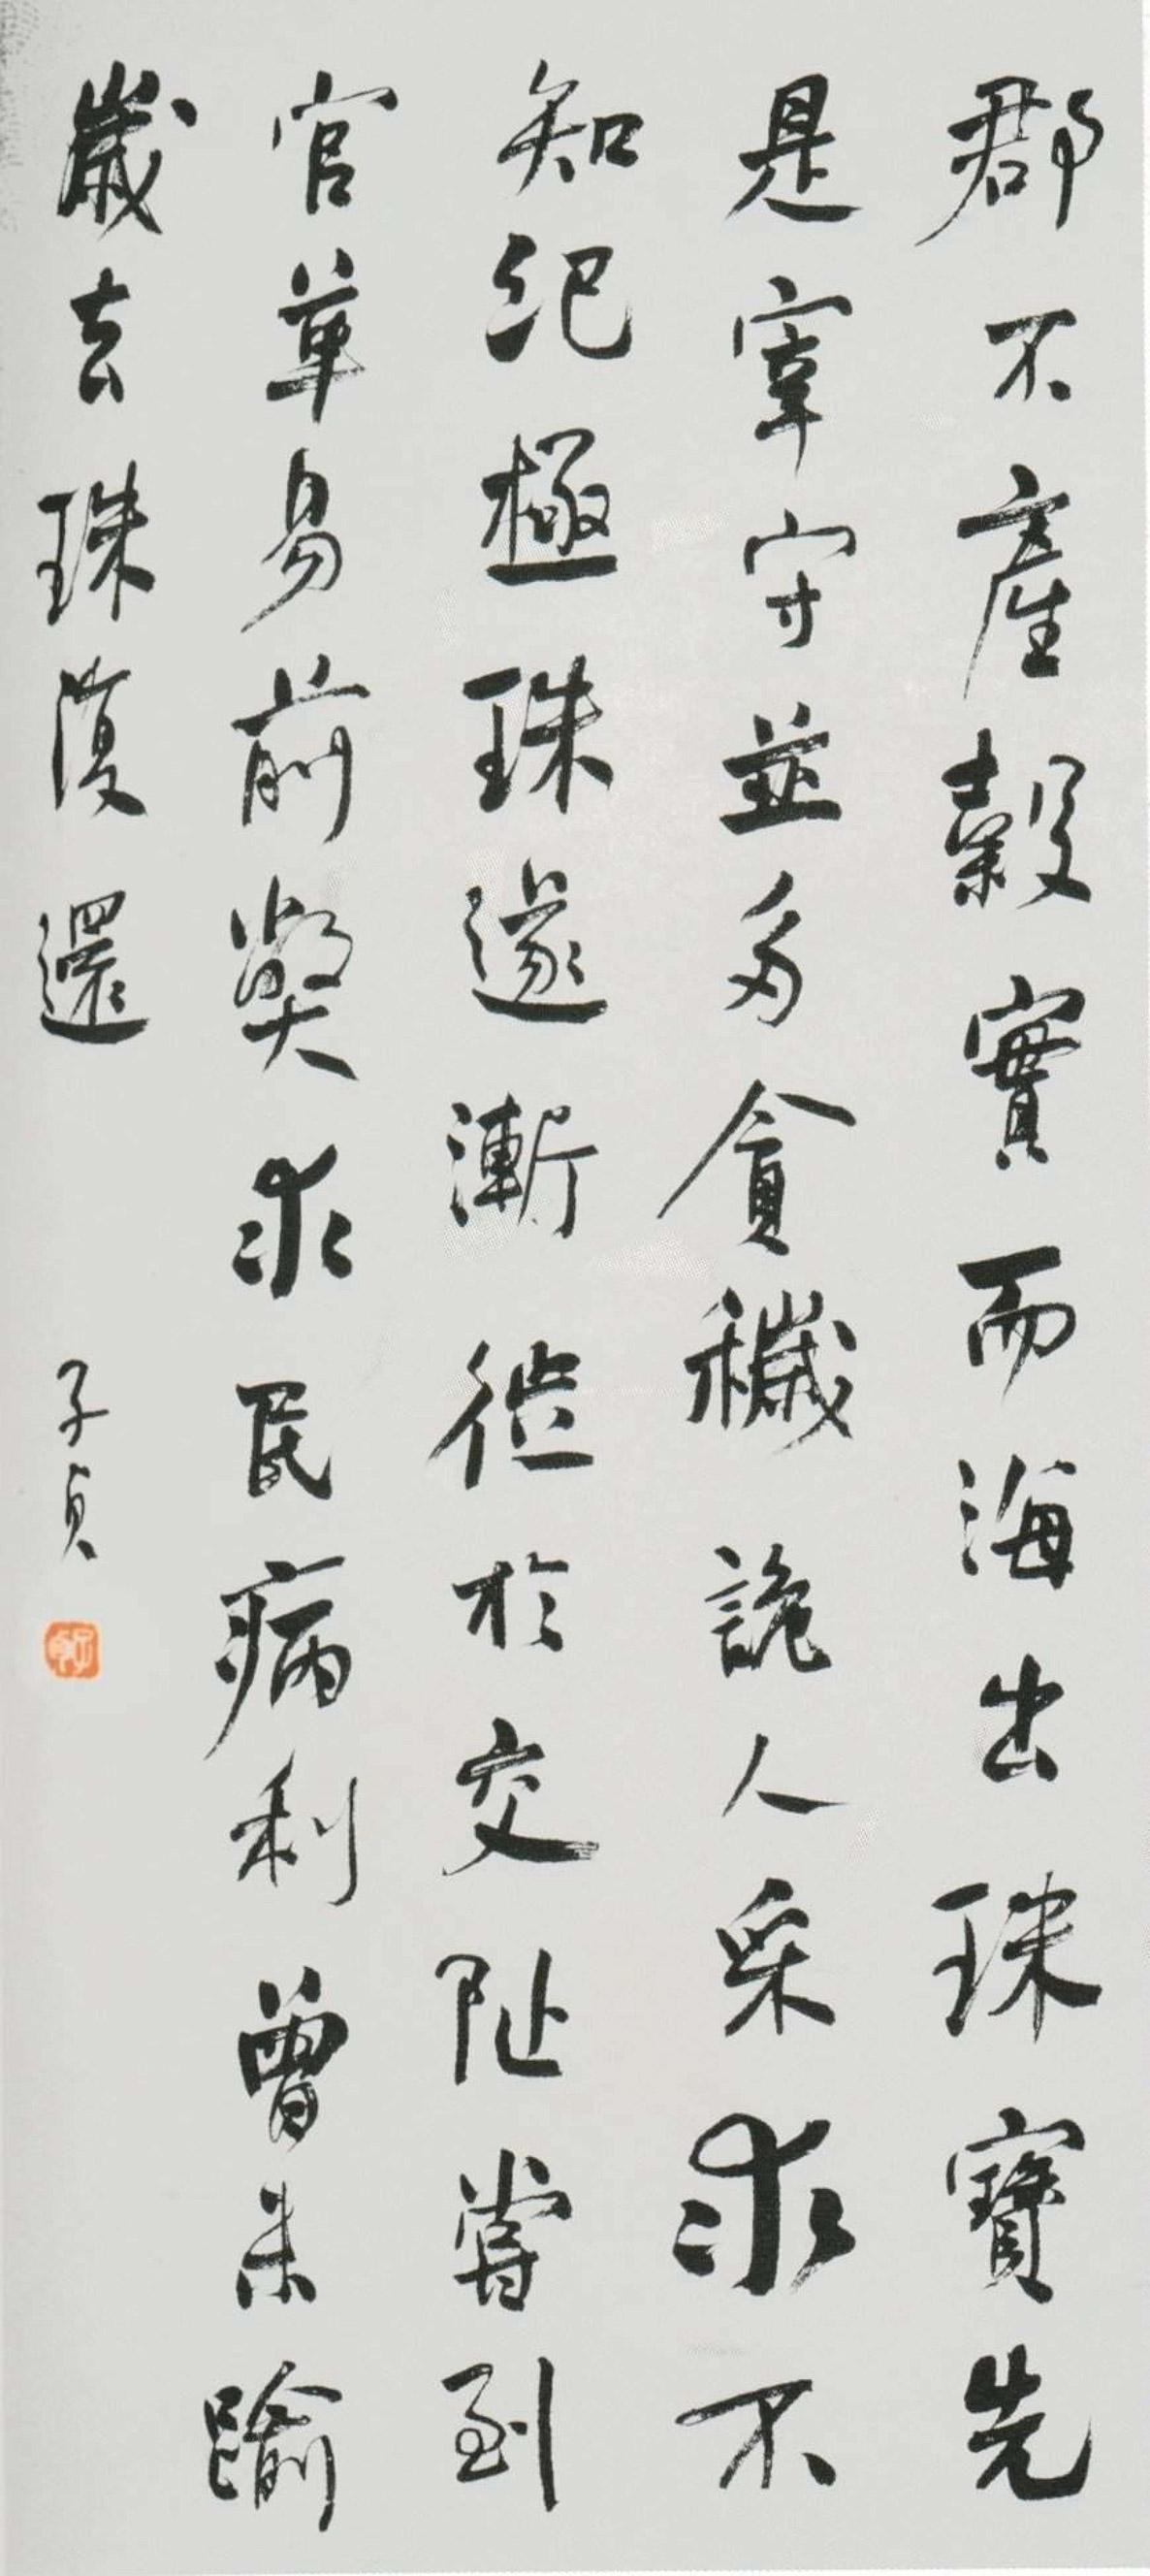 郡不產穀實而海出珠寶先
是宰守並多貪穢詭人采求不
知紀極珠遂漸徙於交阯嘗到
官革易前獘求民病利曾未踰
歲去珠復還
子貞